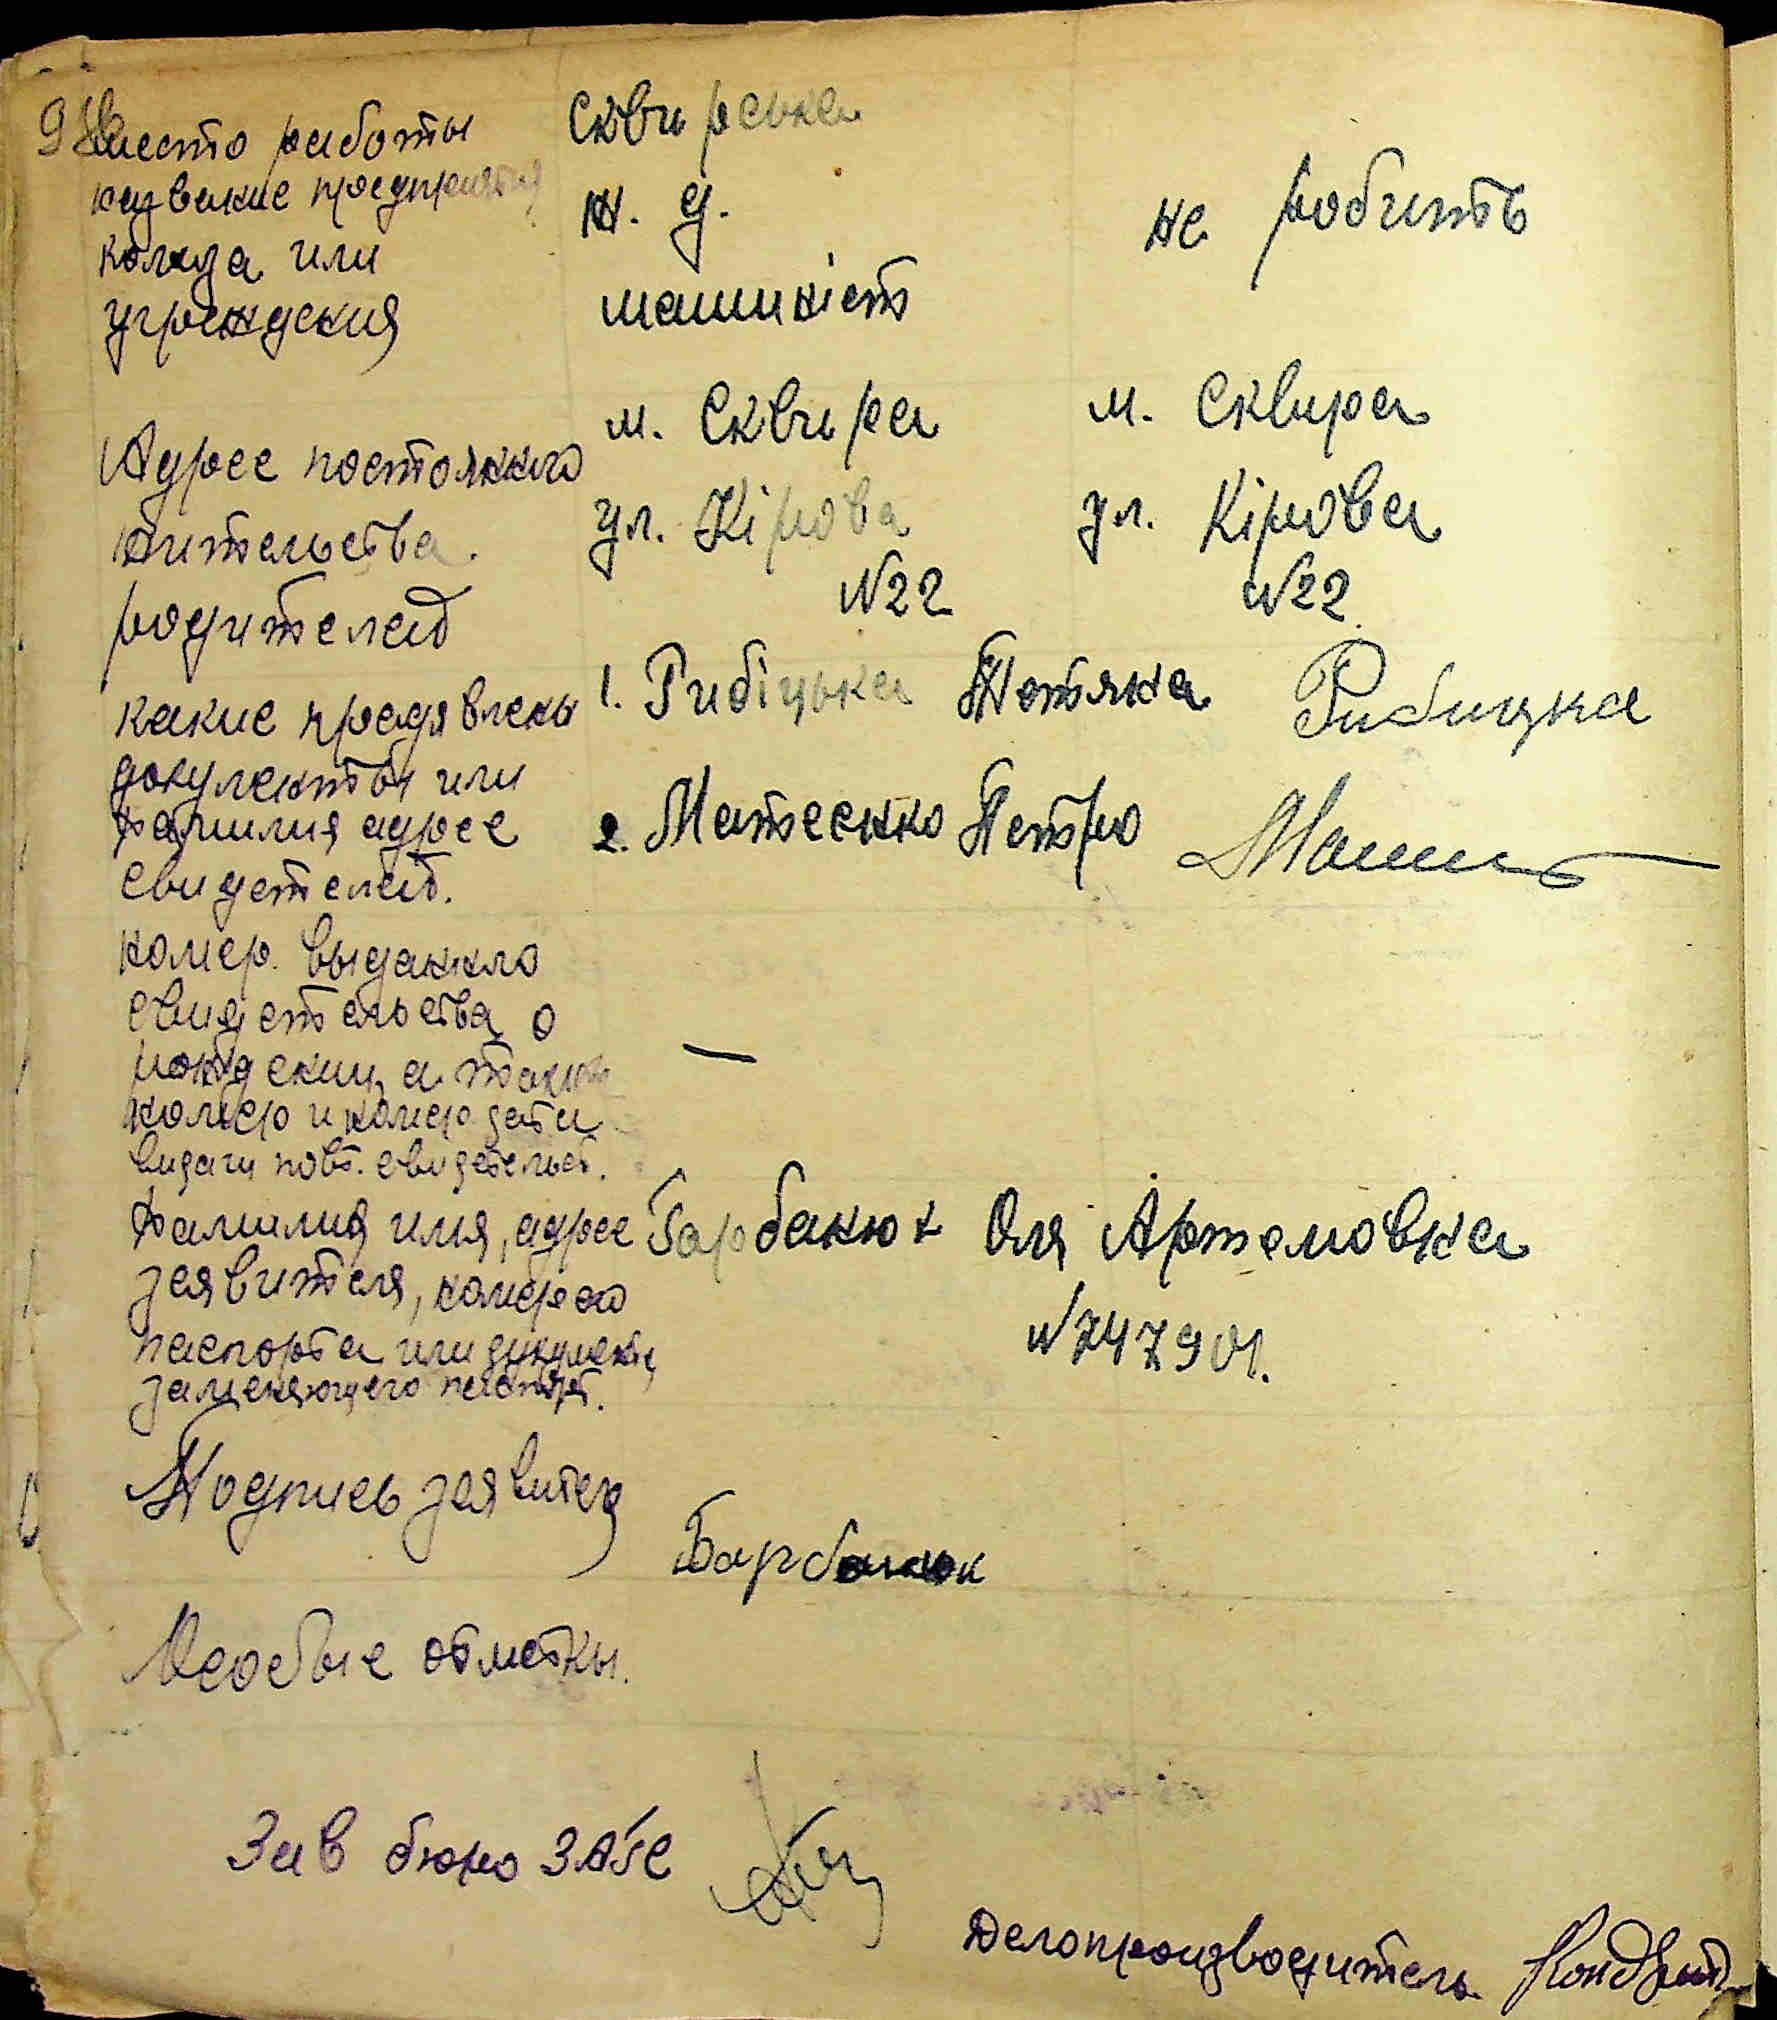 9 Место работы
название предприятия
колхоза или
учреждения
Сквирська
ж. д.
машиніст
не робить
Адрес постоянного
жительства
родителей
м. Сквира
ул. Кірова
N22
м. Сквира
ул. Кірова
N22
какие предявлены
документы или
фамилия адрес
свидетелей.
1. Рибіцька Тетяна Рибицка
2. Матеенко Петро
номер выданного
свидетельства о
рождении а также
номер и номер дати
видачи повт. свидетельст.
—
Фамилия имя, адрес
заявителя, номер его
паспорта или документа
заменяющего паспорт.
Барбанюк Оля Артемовна
N747901.
Подпись заявителя
Барбанюк
Особые отметки.
Зав бюро ЗАГС
Делопроизводитель